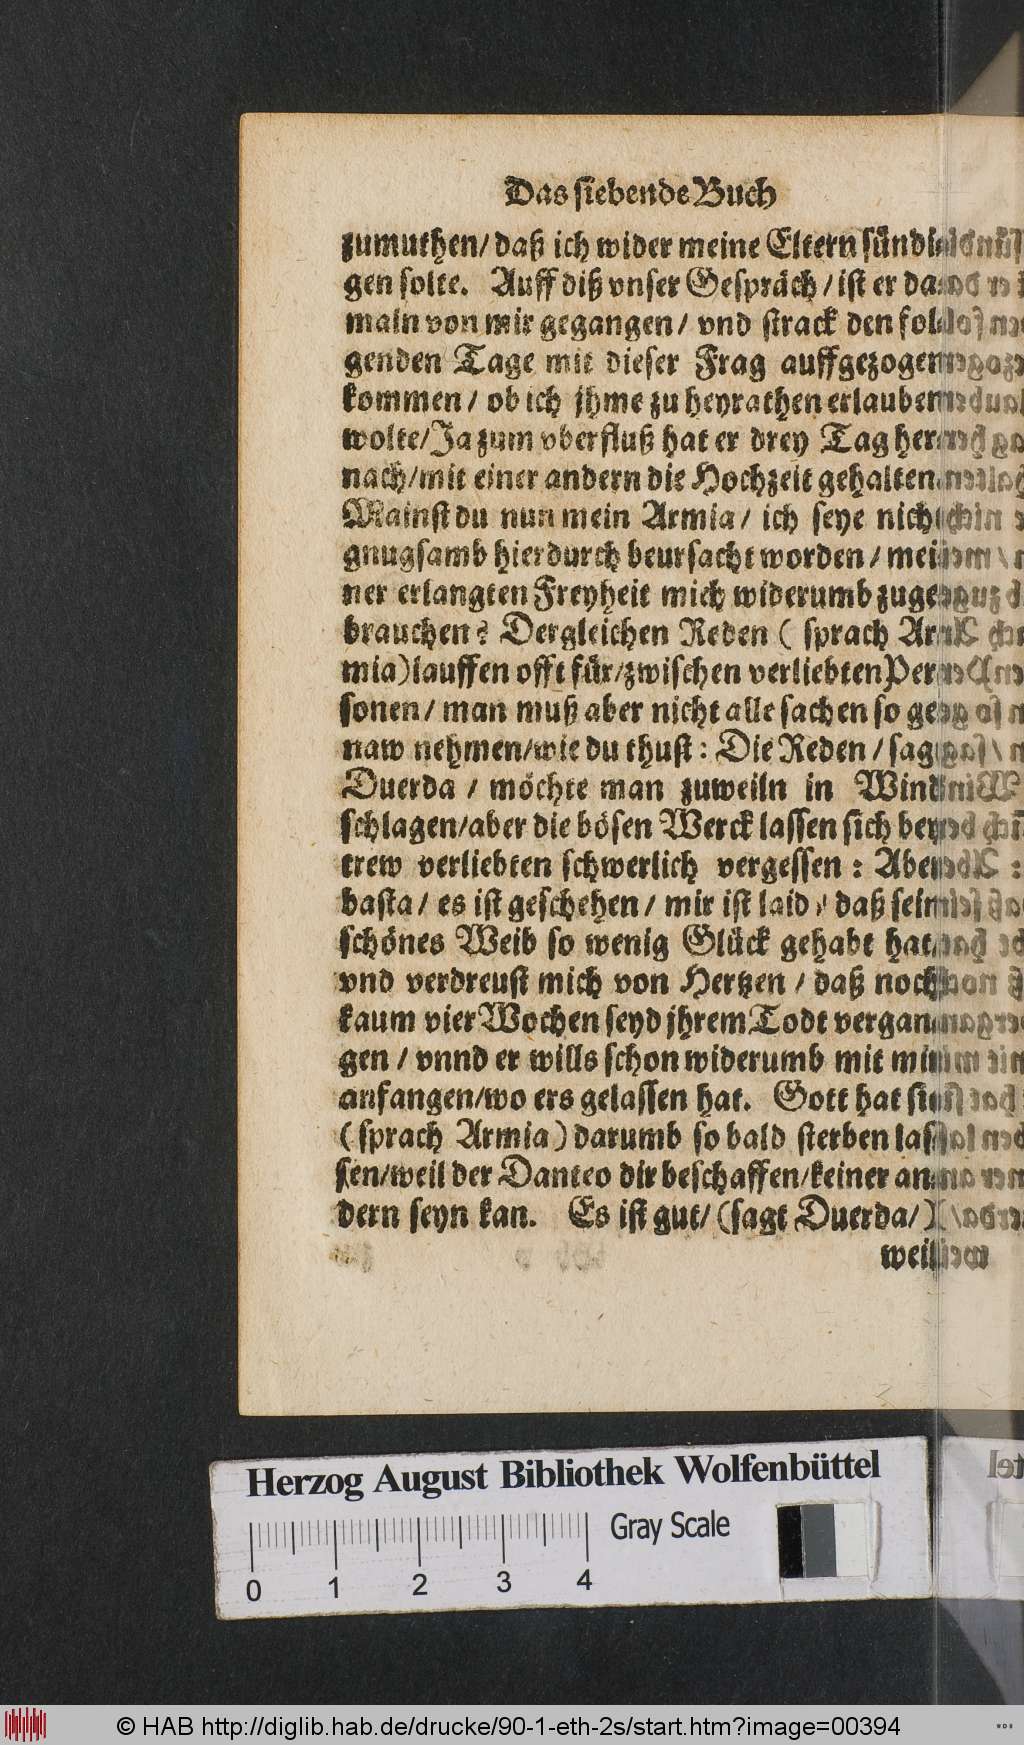 Das siebende Buch
zumuthen/ daß ich wider meine Eltern sündi-
gen solte. Auff diß vnser Gespräch / ist er da-
maln von mir gegangen / vnd strack den fol-
genden Tage mit dieser Frag auffgezogen
kommen / ob ich jhme zu heyrathen erlauben
wolte/Ja zum vberfluß hat er drey Tag her-
nach/mit einer andern die Hochzeit gehalten.
Mainst du nun mein Armia / ich seye nicht
gnugsamb hierdurch beursacht worden / mei-
ner erlangten Freyheit mich widerumb zuge-
brauchen? Dergleichen Reden ( sprach Ar-
mia) lauffen offt für/zwischen verliebten Per-
sonen / man muß aber nicht alle sachen so ge-
naw nehmen/wie du thust: Die Reden / sagt
Duerda / möchte man zuweiln in Wind
schlagen/aber die bösen Werck lassen sich bey
trew verliebten schwerlich vergessen : Aber
basta / es ist geschehen / mir ist laid / daß sein
schönes Weib so wenig Glück gehabt hat,
vnd verdreust mich von Hertzen / daß noch
kaum vier Wochen seyd jhrem Todt vergan-
gen / vnnd er wills schon widerumb mit mir
anfangen/wo ers gelassen hat. Gott hat sie
( sprach Armia ) darumb so bald sterben las-
sen/weil der Danteo dir beschaffen/keiner an-
dern seyn kan. Es ist gut/ (sagt Duerda/)
weil
Herzog August Bibliothek Wolfenbüttel
Gray Scale
0 1 2 3 4
© HAB http://diglib.hab.de/drucke/90-1-eth-2s/start.htm?image=00394